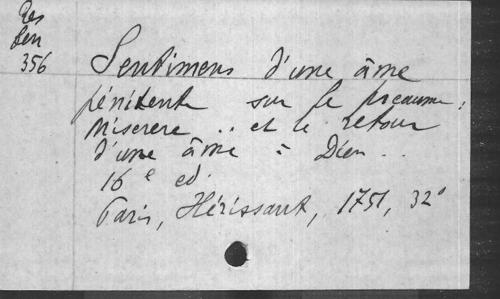 Res
Ben
356
Sentimens d'une âme
pénitente sur le pseaume,
Miserere .. et le retour
d'une âme à Dieu ..
16e ed.
Paris, Hérissant, 1751, 32°